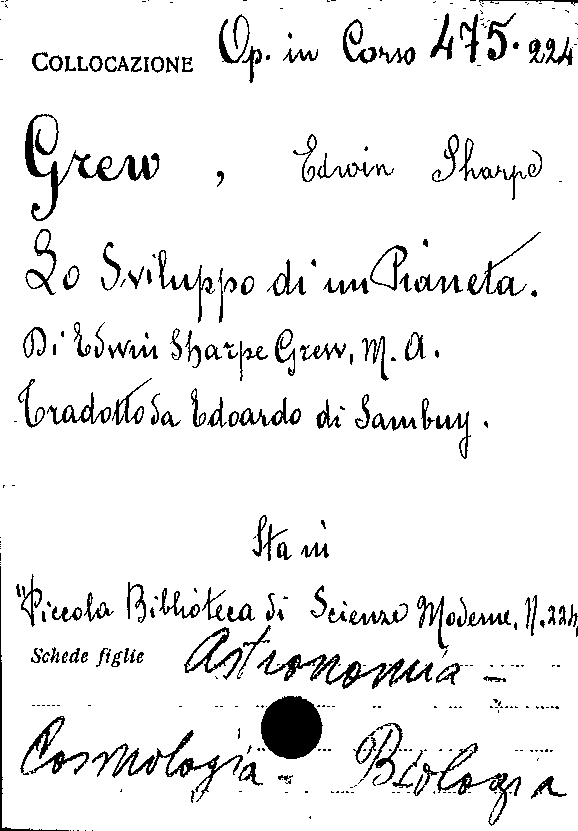 COLLOCAZIONE Op. in Corso 475.224
Grew, Edwin Sharpe
Lo Sviluppo di un Pianeta.
Di Edwin Sharpe Grew, M. A.
Tradotto da Edoardo di Sambuy.
Sta in
"Piccola Biblioteca di Scienze Moderne, N. 224
Schede figlie Astronomia -
Cosmologia - Biologia